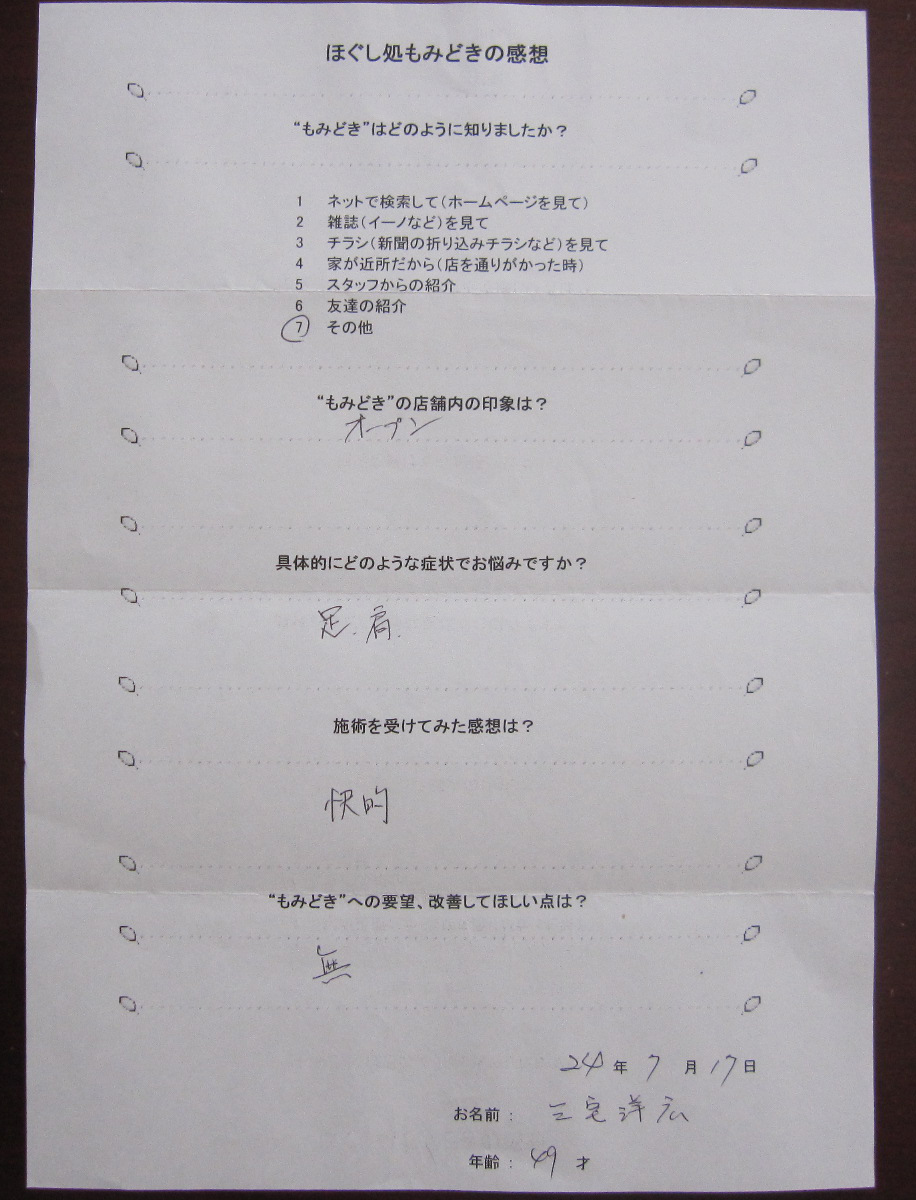 ほぐし処もみどきの感想
“もみどき”はどのように知りましたか？
1 ネットで検索して（ホームページを見て）
2 雑誌（イーノなど）を見て
3 チラシ（新聞の折り込みチラシなど）を見て
4 家が近所だから（店を通りがかった時）
5 スタッフからの紹介
6 友達の紹介
7 その他
“もみどき”の店舗内の印象は？
オープン
具体的にどのような症状でお悩みですか？
足.肩.
施術を受けてみた感想は？
快的
“もみどき”への要望、改善してほしい点は？
無
24年7月17日
お名前：三宅洋広
年齢：49才